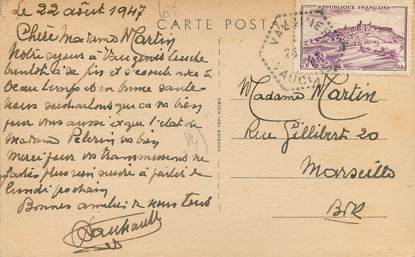 Le 22 août 1947
CARTE POSTALE
Chère Madame Martin
Notre séjour à Vaugines touche
bientôt à sa fin et s'écoule avec le
beau temps et en bonne santé
nous souhaitons que ça va bien
pour vous aussi et que l'état de
Madame Pelerin va bien
Merci pour vos transmissions ne
faites plus rien suivre à partir de
lundi prochain
Bonnes amitiés de nous tous
RÉPUBLIQUE FRANÇAISE
Madame Martin
Rue Gillibert 20
Marseille
BdR